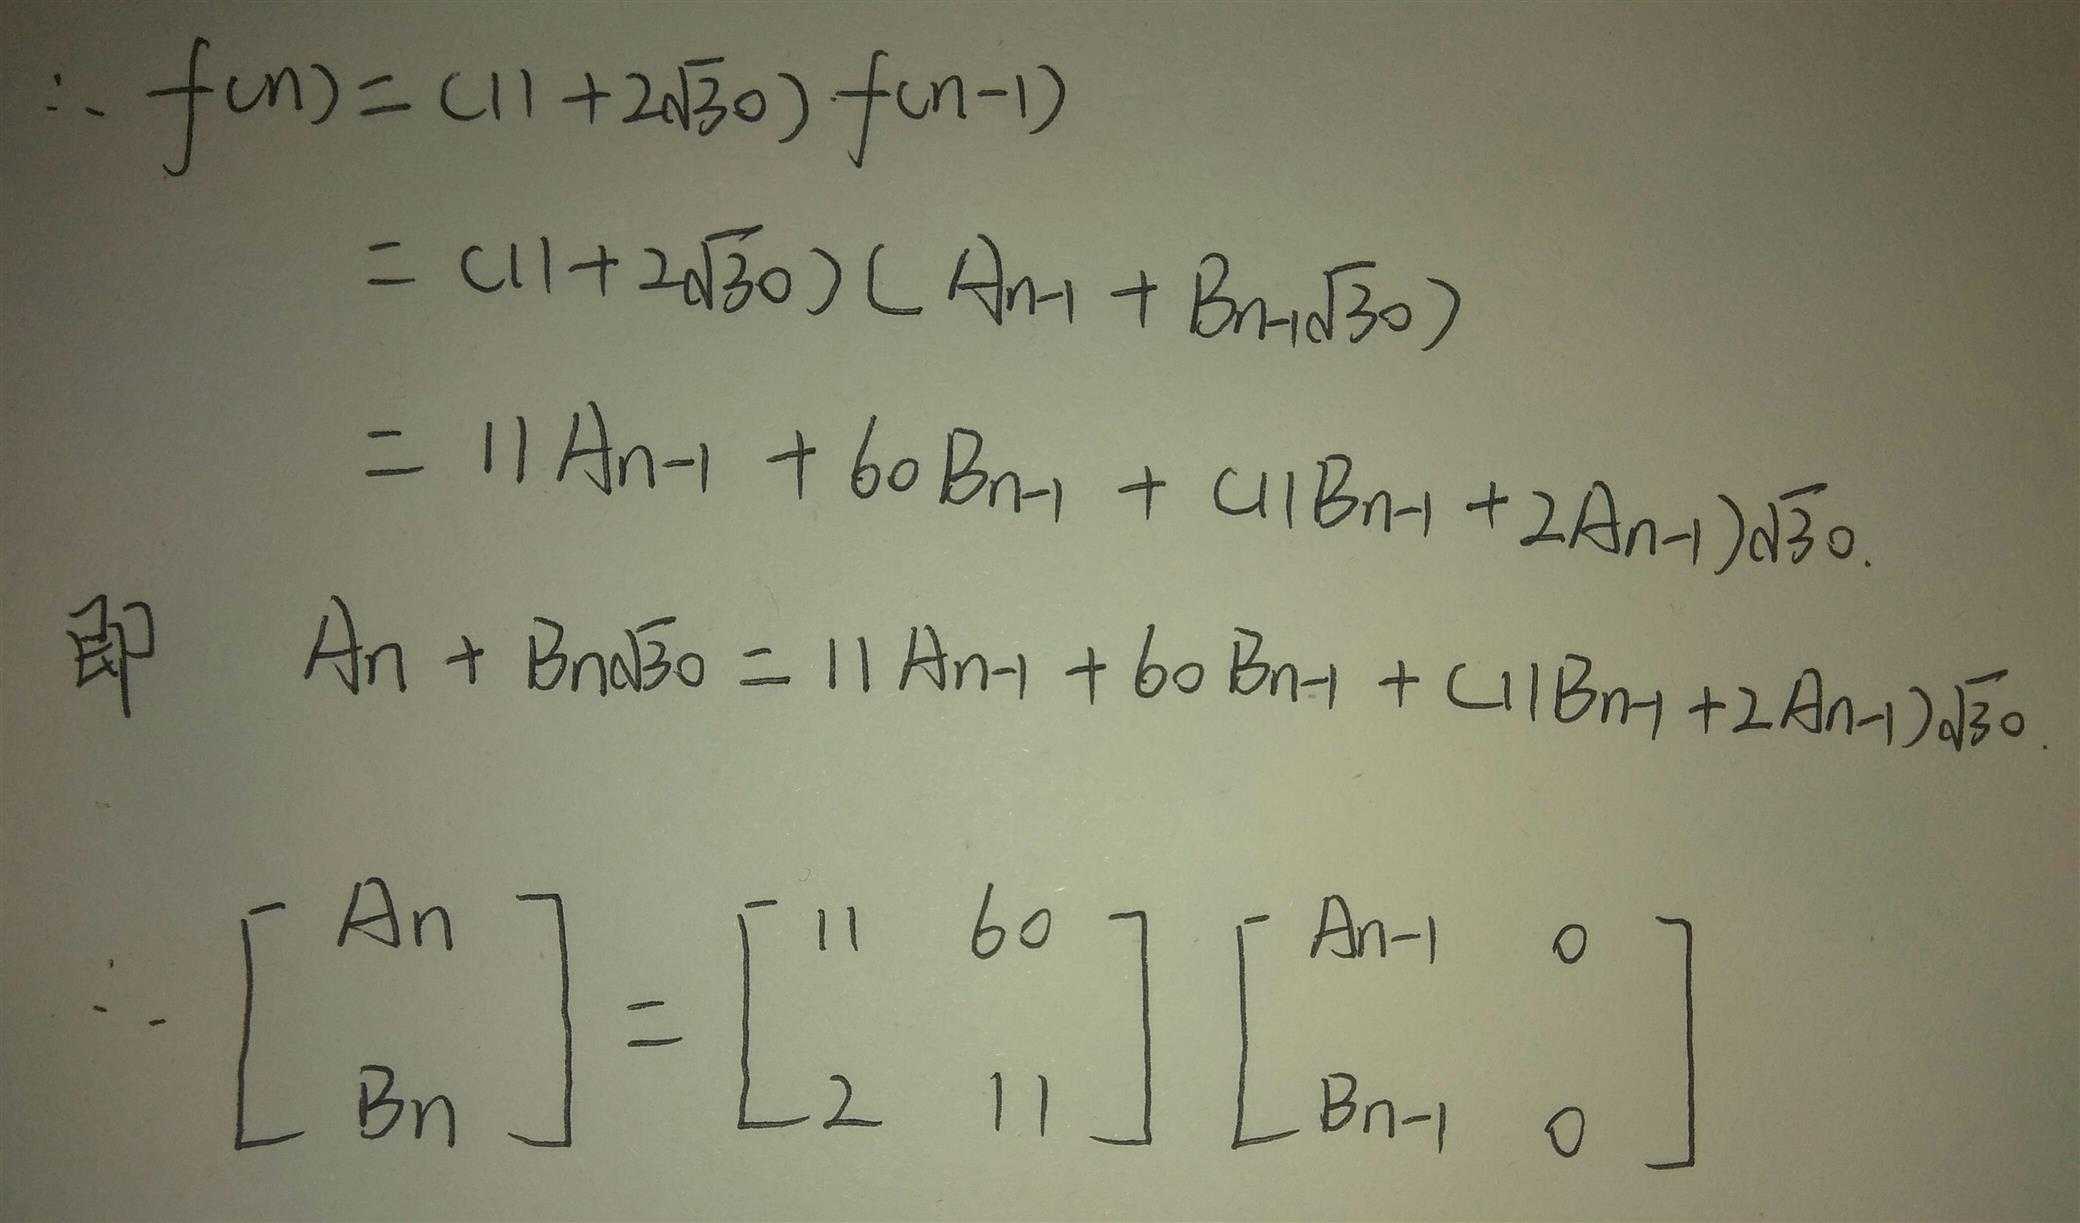 ∴ f(n) = (11 + 2√30) f(n-1)
= (11 + 2√30) ( Aₙ₋₁ + Bₙ₋₁√30)
= 11 Aₙ₋₁ + 60 Bₙ₋₁ + (11Bₙ₋₁ + 2Aₙ₋₁)√30.
即 Aₙ + Bₙ√30 = 11 Aₙ₋₁ + 60 Bₙ₋₁ + (11Bₙ₋₁ + 2Aₙ₋₁)√30.
∴ [ Aₙ ] = [ 11 60 ] [ Aₙ₋₁ 0 ]
[ Bₙ ] [ 2 11 ] [ Bₙ₋₁ 0 ]